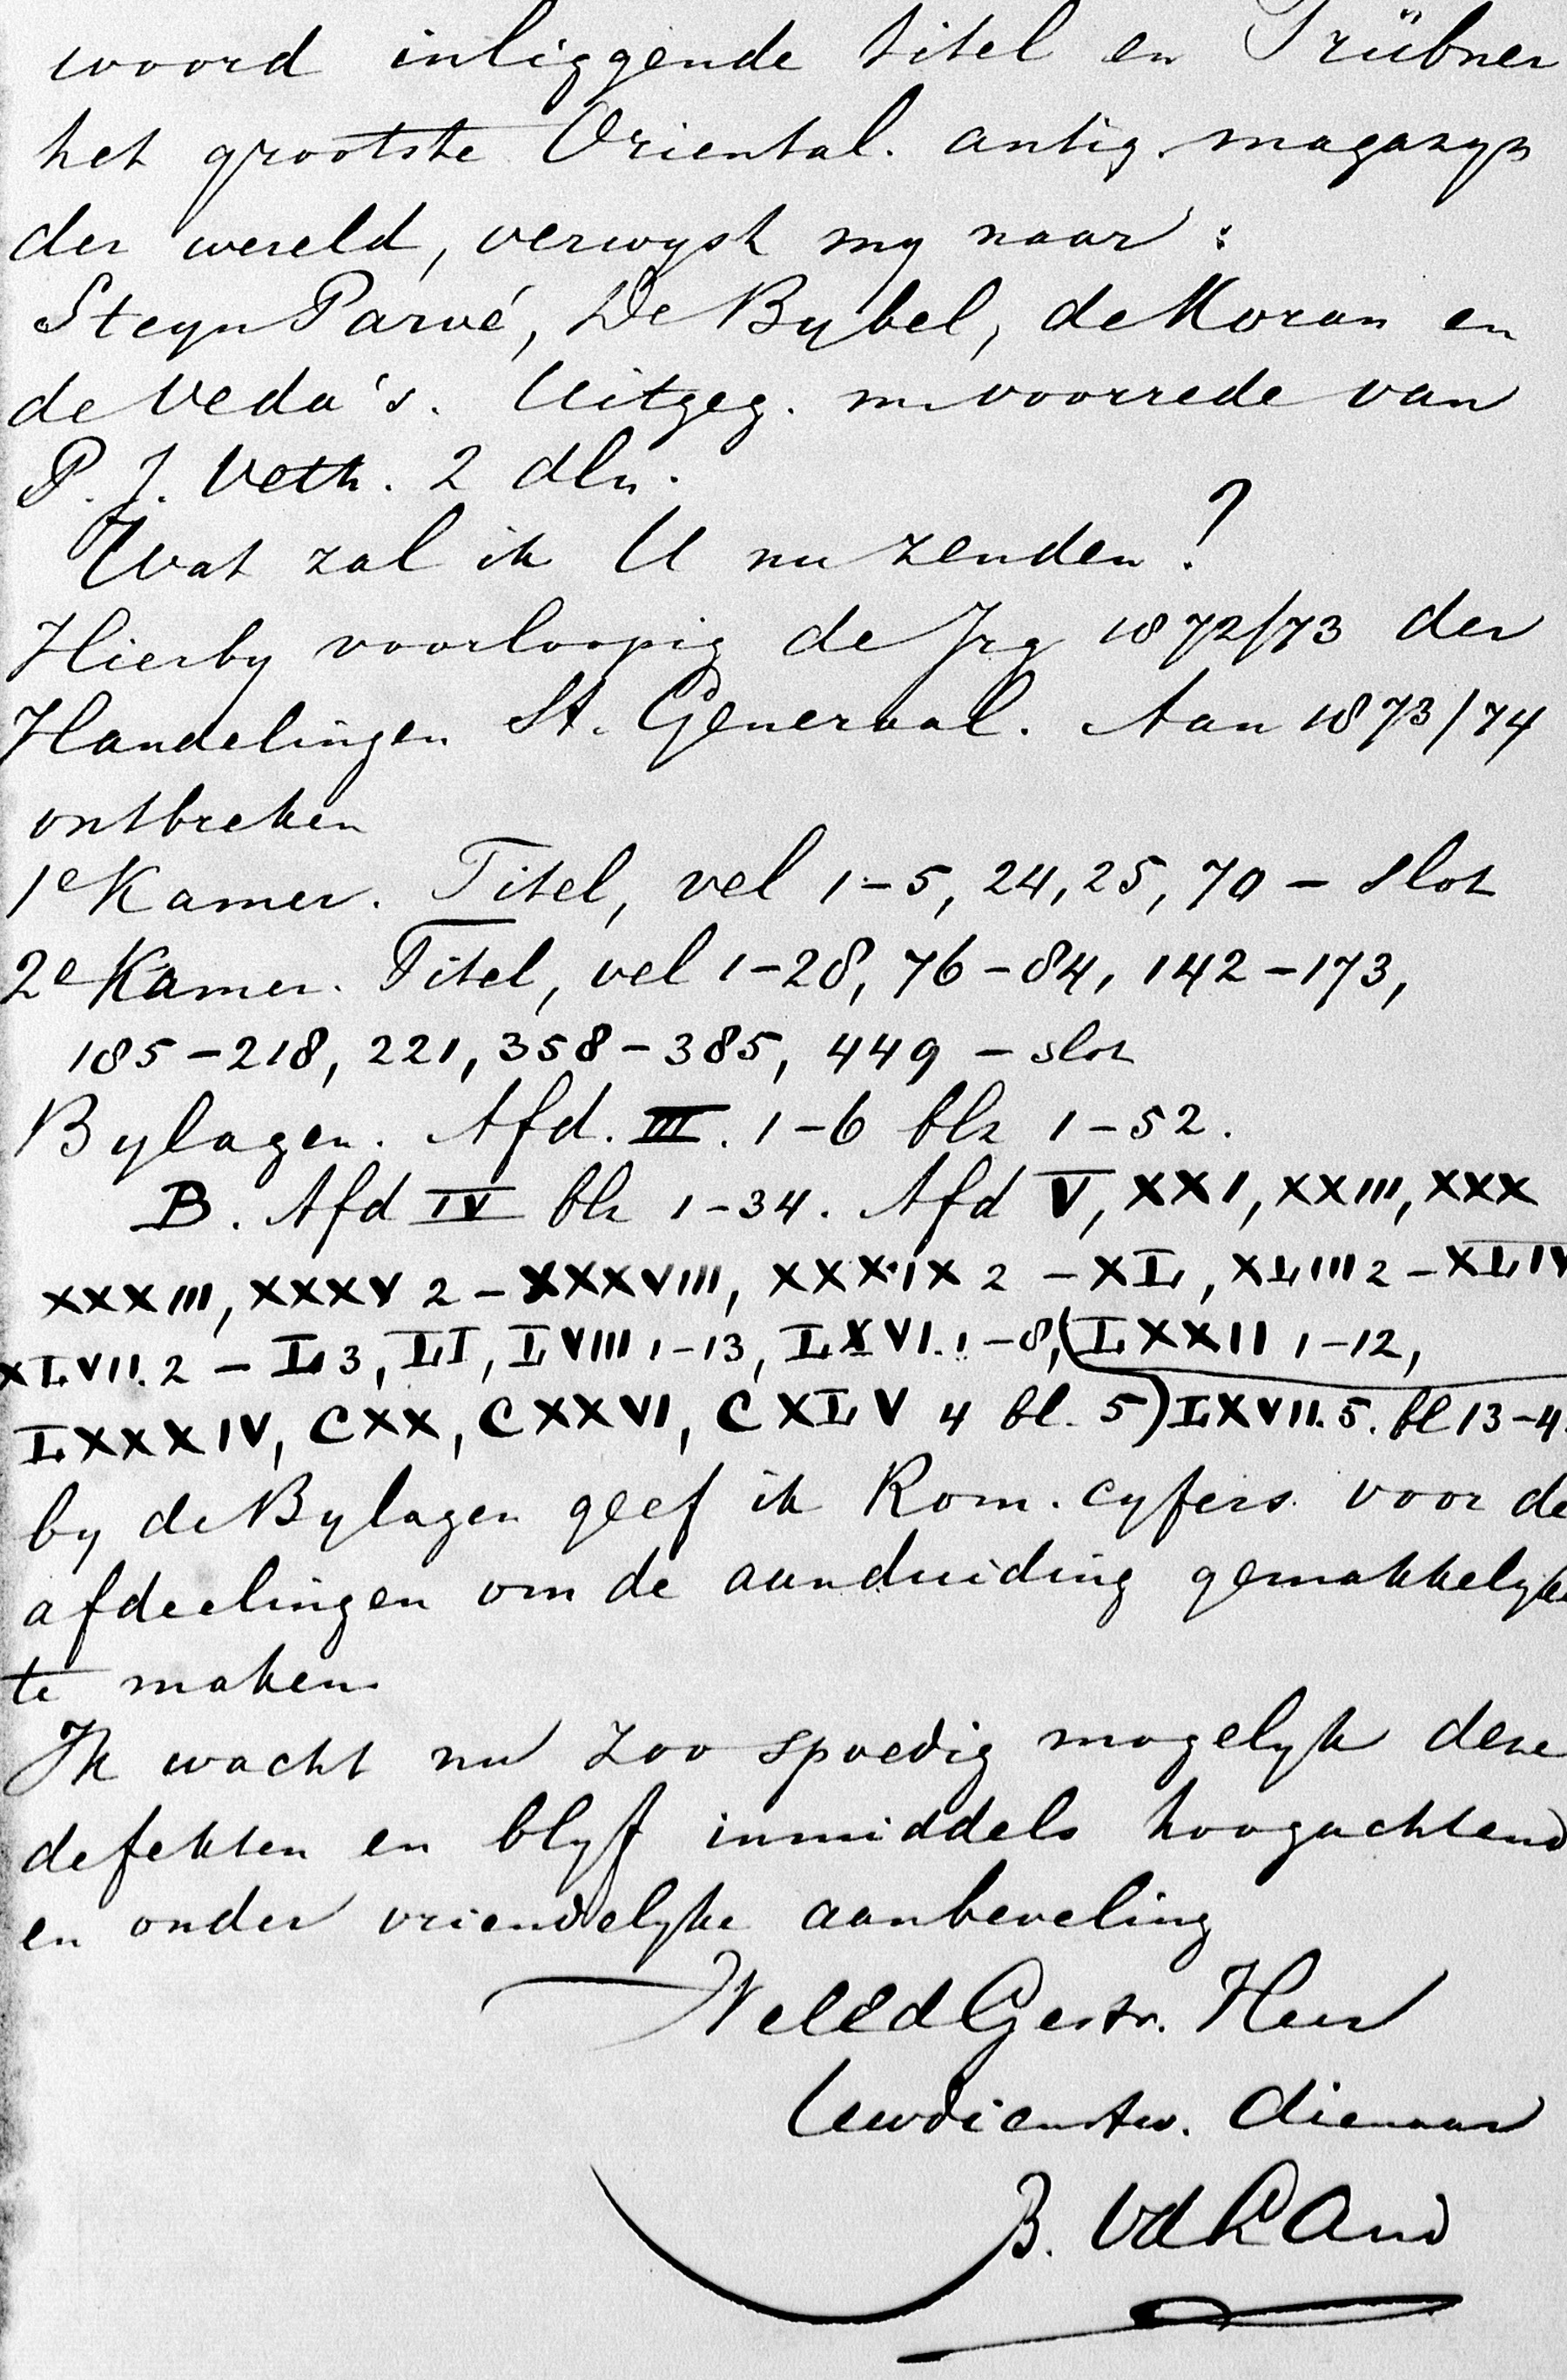 woord inliggende titel en Trübner
het grootste Oriental. antiq. magazyn
der wereld, verwyst my naar:
Steyn Parvé, De Bybel, de Koran en
de Veda's. Uitgeg. m voorrede van
P. J. Veth. 2 dln.
Wat zal ik U nu zenden?
Hierby voorloopig de Jrg 1872/73 der
Handelingen St. Generaal. Aan 1873/74
ontbreken
1e Kamer. Titel, vel 1-5, 24, 25, 70 - slot
2e Kamer. Titel, vel 1-28, 76-84, 142-173,
185-218, 221, 358-385, 449 - slot
Bylagen. Afd. III. 1-6 blz 1-52.
B. Afd IV blz 1-34. Afd V, XXI, XXIII, XXX
XXXIII, XXXV 2 - XXXVIII, XXXIX 2 - XL, XLIII 2 - XLIV
XLVII. 2 - L 3, LI, LVIII 1-13, LXVI. 1-8, (LXXII 1-12,
LXXXIV, CXX, CXXVI, CXLV 4 bl. 5) LXVII. 5. bl 13-4.
by de Bylagen geef ik Rom. cyfers voor de
afdeelingen om de aanduiding gemakkelyk
te maken
Ik wacht nu zoo spoedig mogelyk deze
defekten en blyf inmiddels hoogachtend
en onder vriendelyke aanbeveling
WelEdGestr. Heer
Uwdienstw. dienaar
B. Vd Land